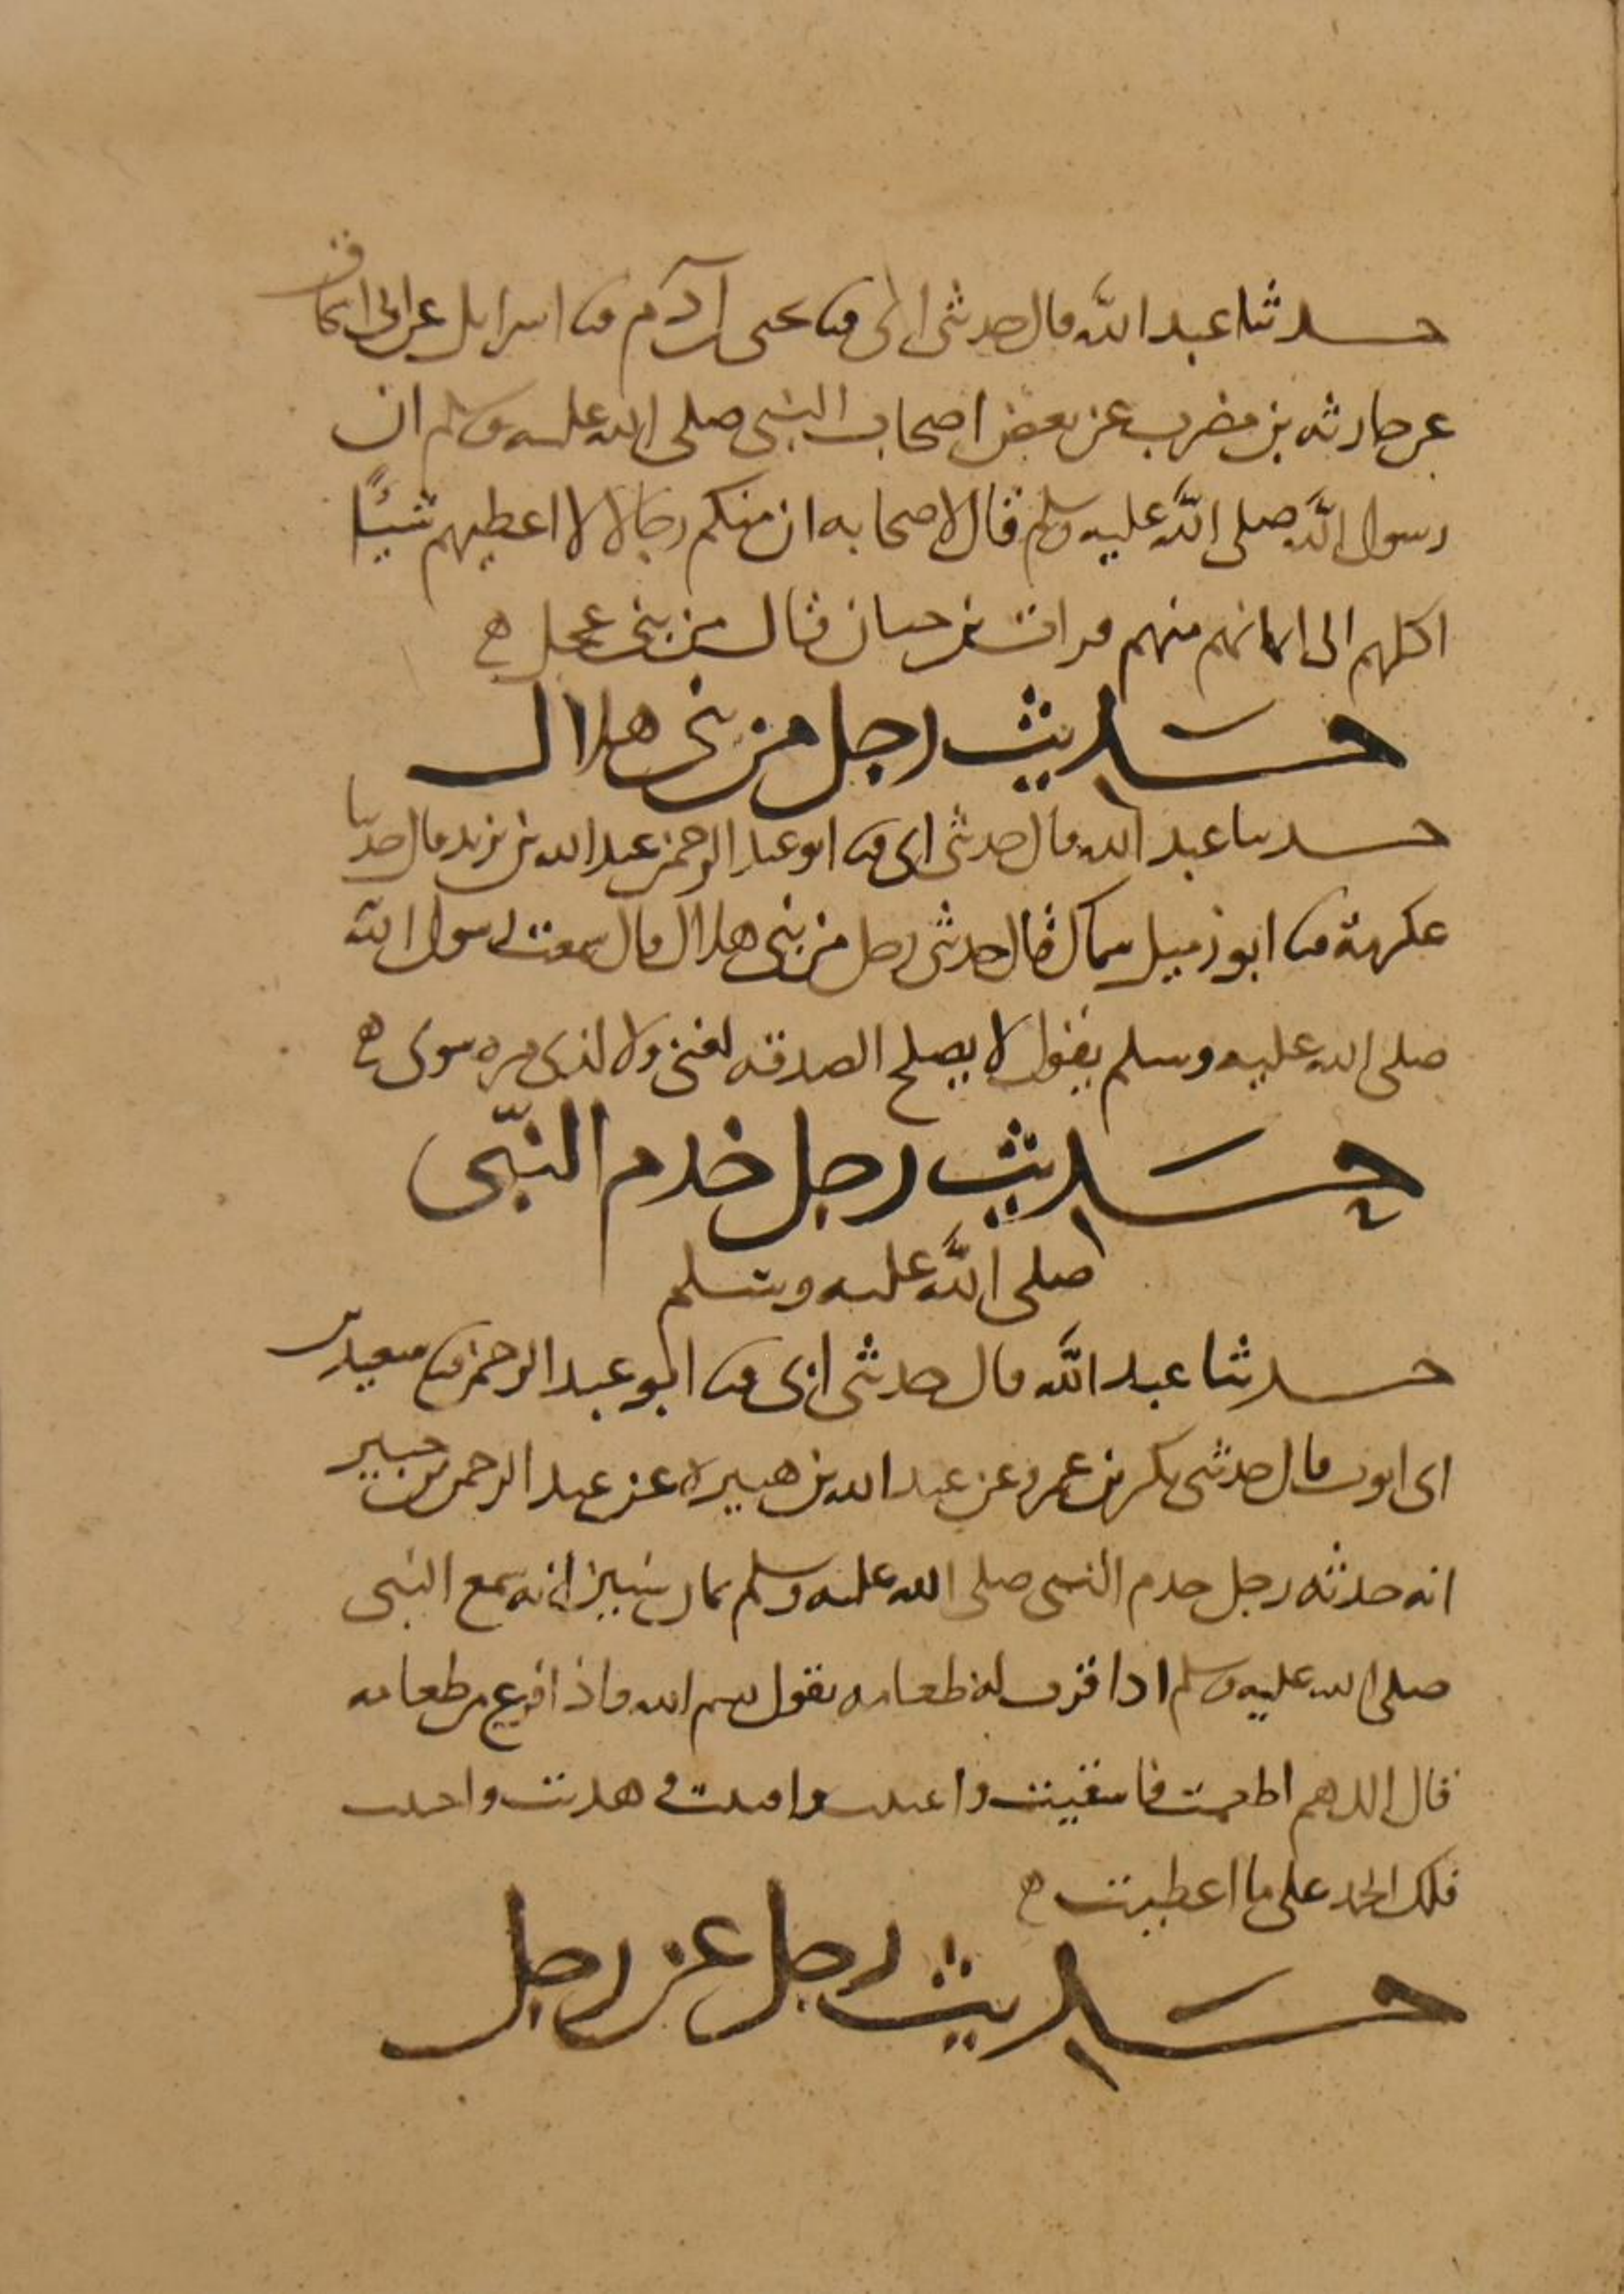 حدثنا عبد الله قال حدثنى ابى ثنا يحيى بن آدم ثنا اسرايل عن ابى اسحاق
عن حارثه بن مضرب عن بعض اصحاب النبى صلى الله عليه وسلم ان
رسول الله صلى الله عليه وسلم قال لاصحابه ان منكم رجالا لا اعطيهم شيئًا
اكلهم الى ايمانهم منهم فرات بن حيان قال من بنى عجل ه
حديث رجل من بنى هلال
حدثنا عبد الله قال حدثنى ابى ثنا ابو عبد الرحمن عبد الله بن يزيد قال حدثنا
عكرمة ثنا ابو زميل سماك قال حدثنى رجل من بنى هلال قال سمعت رسول الله
صلى الله عليه وسلم يقول لا يصلح الصدقه لغنى ولا لذى مره سوى ه
حديث رجل خدم النبّى
صلى الله عليه وسلم
حدثنا عبد الله قال حدثنى ابى ثنا ابو عبد الرحمن ثنا سعيد بن
ابى ايوب قال حدثنى بكر بن عمرو عن عبد الله بن هبيرة عن عبد الرحمن بن جبير
انه حدثه رجل خدم النبى صلى الله عليه وسلم ثمان سنين انه سمع النبى
صلى الله عليه وسلم اذا قرب له طعامه يقول بسم الله واذا فرغ من طعامه
قال اللهم اطعمت فاسقيت واغنيت واقنيت و هديت واحييت
فلك الحمد على ما اعطيت ه
حديث رجل عن رجل